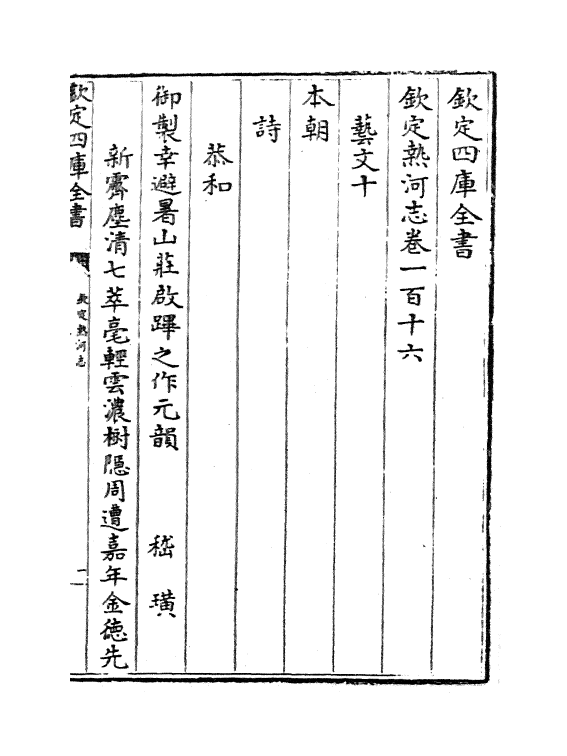 欽定四庫全書
欽定熱河志卷一百十六
藝文十
本朝
詩
恭和
御製幸避暑山莊啟蹕之作元韻 嵇璜
新霽塵清七萃亳輕雲濃樹隱周遭嘉年金徳先
欽定四庫全書
欽定熱河志
一